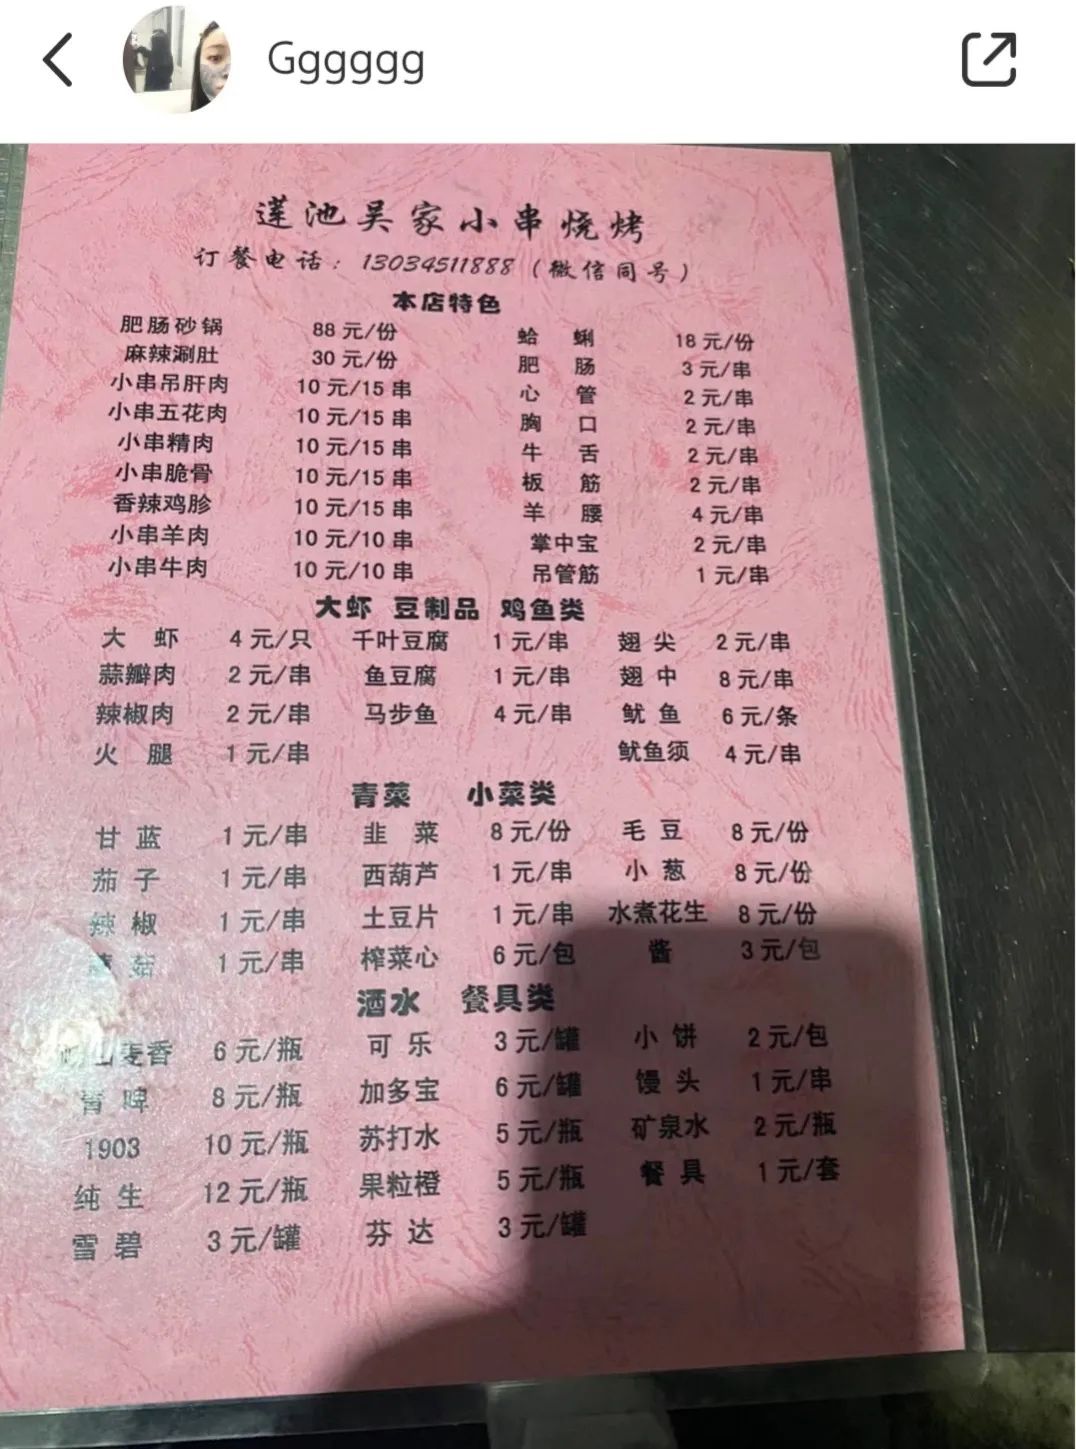 Gggggg
莲池吴家小串烧烤
订餐电话：13034511888（微信同号）
本店特色
肥肠砂锅 88元/份 蛤蜊 18元/份
麻辣涮肚 30元/份 肥肠 3元/串
小串吊肝肉 10元/15串 心管 2元/串
小串五花肉 10元/15串 胸口 2元/串
小串精肉 10元/15串 牛舌 2元/串
小串脆骨 10元/15串 板筋 2元/串
香辣鸡胗 10元/15串 羊腰 4元/串
小串羊肉 10元/10串 掌中宝 2元/串
小串牛肉 10元/10串 吊管筋 1元/串
大虾 豆制品 鸡鱼类
大虾 4元/只 千叶豆腐 1元/串 翅尖 2元/串
蒜瓣肉 2元/串 鱼豆腐 1元/串 翅中 8元/串
辣椒肉 2元/串 马步鱼 4元/串 鱿鱼 6元/条
火腿 1元/串 鱿鱼须 4元/串
青菜 小菜类
甘蓝 1元/串 韭菜 8元/份 毛豆 8元/份
茄子 1元/串 西葫芦 1元/串 小葱 8元/份
辣椒 1元/串 土豆片 1元/串 水煮花生 8元/份
菇 1元/串 榨菜心 6元/包 酱 3元/包
酒水 餐具类
麦香 6元/瓶 可乐 3元/罐 小饼 2元/包
青啤 8元/瓶 加多宝 6元/罐 馒头 1元/串
1903 10元/瓶 苏打水 5元/瓶 矿泉水 2元/瓶
纯生 12元/瓶 果粒橙 5元/瓶 餐具 1元/套
雪碧 3元/罐 芬达 3元/罐